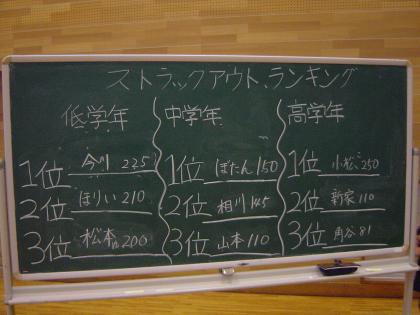 ストラックアウト、ランキング
低学年 中学年 高学年
1位 今川 225 1位 ぼたん 150 1位 小松 250
2位 ほりい 210 2位 相川 145 2位 新家 110
3位 松本 200 3位 山本 110 3位 角谷 81